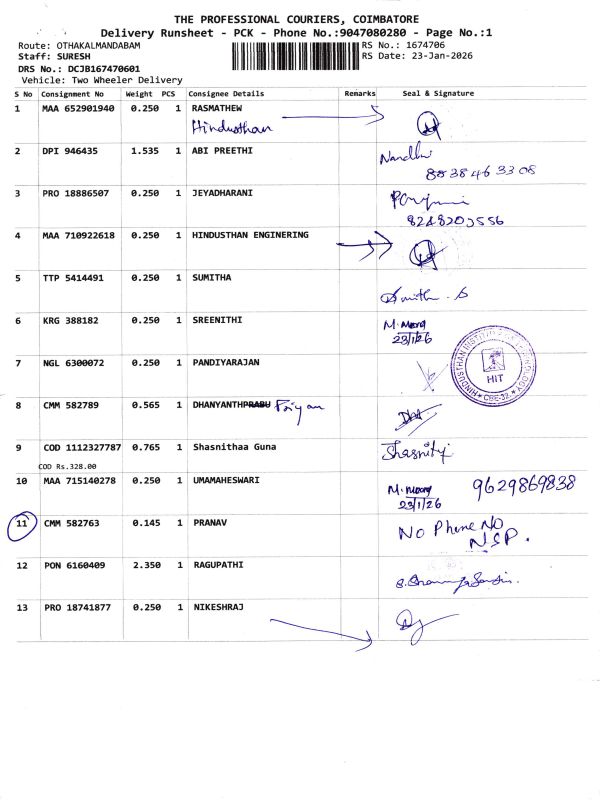 THE PROFESSIONAL COURIERS, COIMBATORE
Delivery Runsheet - PCK - Phone No.:9047080280 - Page No.:1
Route: OTHAKALMANDABAM RS No.: 1674706
Staff: SURESH RS Date: 23-Jan-2026
DRS No.: DCJB167470601
Vehicle: Two Wheeler Delivery
S No Consignment No Weight PCS Consignee Details Remarks Seal & Signature
1 MAA 652901940 0.250 1 RASMATHEW
Hindusthan
2 DPI 946435 1.535 1 ABI PREETHI Nandhu
3 PRO 18886507 0.250 1 JEYADHARANI
4 MAA 710922618 0.250 1 HINDUSTHAN ENGINERING
5 TTP 5414491 0.250 1 SUMITHA
6 KRG 388182 0.250 1 SREENITHI
23/1/26
7 NGL 6300072 0.250 1 PANDIYARAJAN
HIT
CBE-32
8 CMM 582789 0.565 1 DHANYANTHPRABU
9 COD 1112327787 0.765 1 Shasnithaa Guna
COD Rs.328.00
10 MAA 715140278 0.250 1 UMAMAHESWARI 9629869838
23/1/26
11 CMM 582763 0.145 1 PRANAV No Phone No
NSP.
12 PON 6160409 2.350 1 RAGUPATHI
13 PRO 18741877 0.250 1 NIKESHRAJ